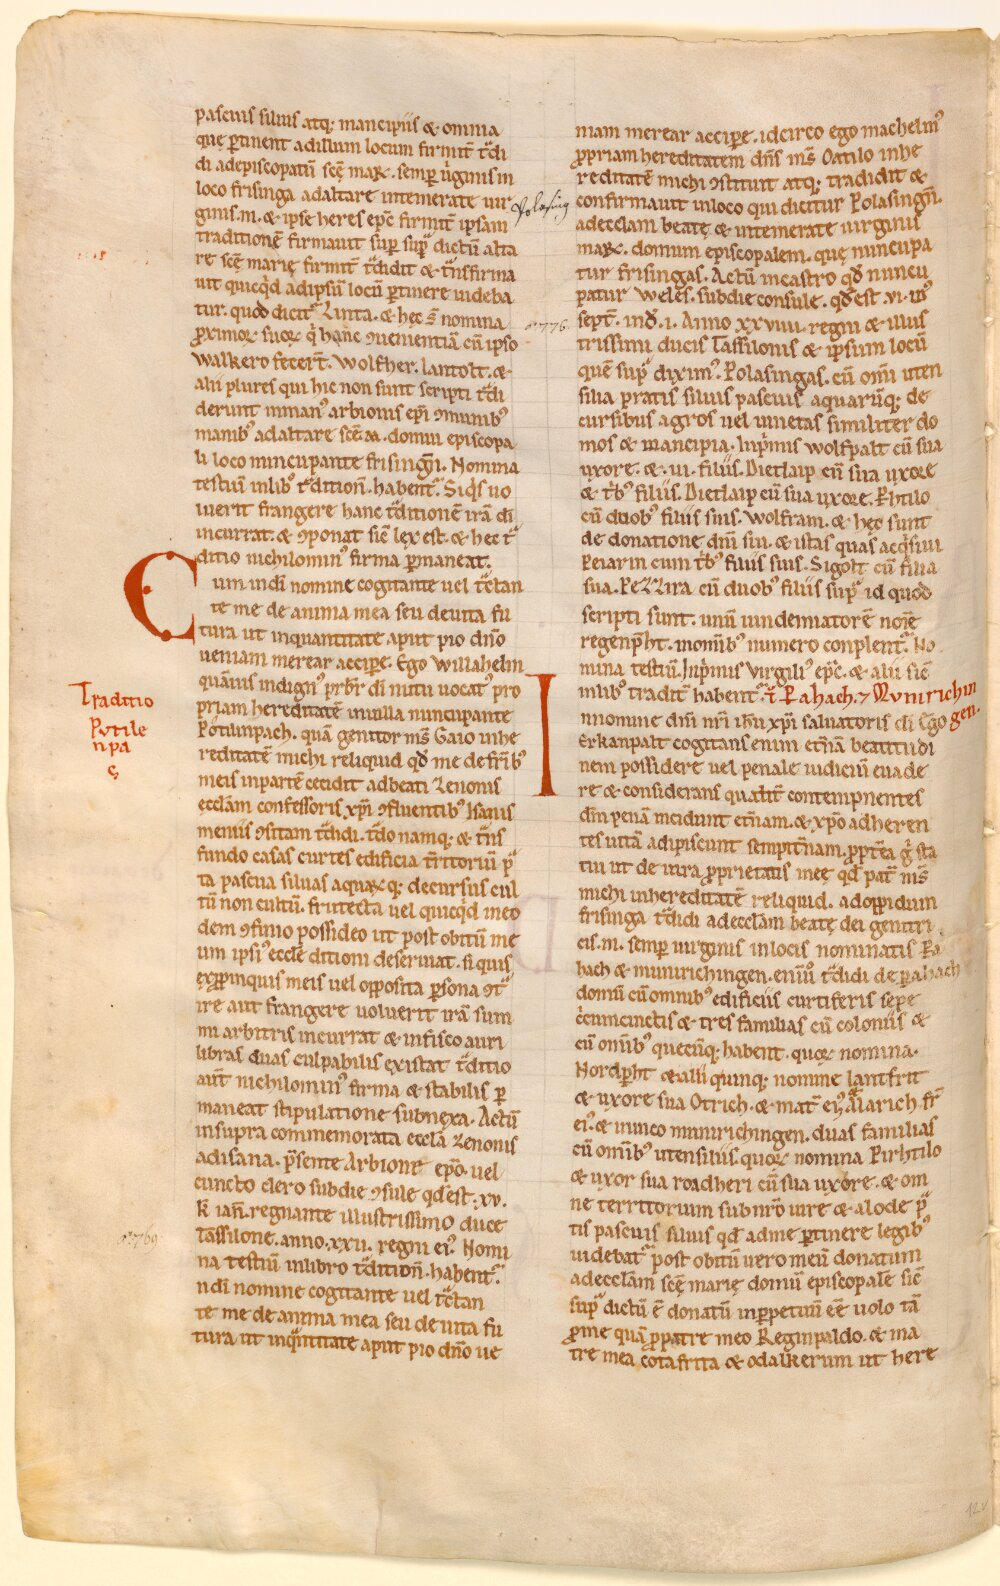 pascuis siluis atq; mancipiis & omnia
quę ꝑtinent adillum locum firmit̄ t͛di
di adepiscopatū scē maꝶ. semꝑ uirginis in
loco frisinga adaltare intemerate uir
ginis .m. & ipse heres epc̄ firmit̄ ipsam
traditionē firmauit suꝑ sup͛ dictū alta
re scē marię firmit̄ t͛didit & t͛nsfirma
uit quicqͥd adipsū locū ꝑtinere uideba
tur. quod dicit᷑ Linta. & hęc s̄ nomina
ꝓximoꝶ suoꝶ qͥ hanc ꝯuenientiā cū ipso
Walkero fecer̄t. Wolfher. Lantolt. &
alii plures qui hic non sunt scripti t͛di
derunt inman᷒ arbionis epi ꝯmunib᷒
manib᷒ adaltare scē .M. domui episcopa
li loco nuncupante frisingin̄. Nomina
testiū inlib᷒ t͛dition̄. habent᷑. Siqͥs uo
luerit frangere hanc t͛ditionē irā dī
incurrat. & ꝯponat sic̄ lex est. & hec t͛
ditio nichilomin᷒ firma ꝑmaneat.
Cum indī nomine cogitante uel t͛ctan
te me de anima mea seu deuita fu
tura ut inquantitate aput pio dn̄o
ueniam merear acciꝑe. Ego Willahelm
quāuis indign᷒ prb̄r dī nutu uocat᷒ pro
priam hereditatē inuilla nuncupante
Pōtilinpach. quā genitor ms̄ Gaio inhe
reditatē michi reliquid qd̄ me defrīb᷒
meis inpartē cecidit adbeati Zenonis
ecclām confessoris .xp̄i ꝯfluentib᷒ Isanis
meniis ꝯsitam t͛didi. t͛do namq; & t͛ns
fundo casas curtes edificia t̄ritoriū p͛
ta pascua siluas aquaꝶ q; decursus cul
tū non cultū. frutecta uel quicqͥd ineo
dem ꝯfinio possideo ut post obitū me
um ipsi᷒ ecclē ditioni deseruiat. si quis
eꝓpinquis meis uel opposita ꝑsona ꝯt͛
ire aut frangere uoluerit irā sum
mi arbitris incurrat & infisco auri
libras duas culpabilis existat t͛ditio
aut̄ nichilomin᷒ firma & stabilis ꝑ
maneat stipulatione subnexa. Actū
insupra commemorata ecclā Zenonis
adisana. p̄sente Arbione epō. uel
cuncto clero subdie ꝯsule qd̄ est .xv.
k iaň. regnante illustrissimo duce
Tassilone. anno. xxii. regni ei᷒. Nomi
na testiū inlibro t͛dition̄. habent᷑.
ndī nomine cogitante uel t͛ctan
te me de anima mea seu de uita fu
tura ut inqͣntitate aput pio dn̄o ue
Traditio
Pvtile
npa
ę
a. 769
Polasing
a. 776.
niam merear acciꝑe. idcirco ego machelm᷒
ꝓpriam hereditatem dn̄s ms̄ Oatilo inhe
reditatē michi ꝯstituit atq; tradidit &
confirmauit inloco qui dicitur Polasingin̄.
adecclam beatę & intemerate uirginis
maꝶ. domum episcopalem. quę nuncupa
tur frisingas. Actū incastro qd̄ nuncu
patur weles. subdie consule. qd̄ est .vi. id᷒
sept̄. ind̄. i. Anno xxviiii. regni & illus
trissimi ducis Tassilonis & ipsum locū
quē sup͛ dixim᷒. Polasingas. cū om̄i uten
silia pratis siluis pascuis aquarūq; de
cursibus agros uel uinetas similiter do
mos & mancipia. Inp̄mis wolfpalt cū sua
uxore. & .vi. filiis. Dietlaip cū sua uxore
& t͛b᷒ filiis. Dietlaip cū sua uxore. Phtilo
cū duob᷒ filiis suis. Wolfram. & hęc sunt
de donatione dm̄ sui. & istas quas acqͥsiui
Peiarin cum t͛b᷒ filiis suis. Sigolt cū filia
sua. Pezzira cū duob᷒ filiis sup͛ id quod
scripti sunt. unū iundenniatorē noīe
regenp̄ht. inomīb᷒ numero conplent᷑. No
mina testiū. Inp̄mis Virgili᷒ epc̄. & alii sic̄
inlib᷒ tradit̄ habent᷑. T͛ Pahach. ⁊ Mvnirichin
gen.
Innomine dn̄i nr̄i ih̄u xp̄i saluatoris dī Ego
Erkanpalt cogitans enim et̄nā beatitudi
nem possidere uel penale iudiciū euade
re & considerans qualit̄ contempnentes
dm̄ penā incidunt et̄nam. & xpō adheren
tes uitā adipiscunt sempit̄nam. ꝓpt̄ea gͥ sta
tui ut de iura ꝓprietatis meę qd̄ pat̄ ms̄
michi inhereditatē reliquid. adoppidum
frisinga t͛didi adecclam beatę dei genitri
cis .m. semꝑ uirginis inlocis nominatis Pa
hach & munirichingen. enim᷒ t͛didi de pahach
domū cū omnib᷒ edificiis curtiferis sepe
cͥcumcinctis & tres familias cū coloniis &
cū omīb᷒ quecūq; habent. quoꝶ nomina.
Nordp̄ht & alii quinq; nomine lantfrit
& uxore sua Otrich. & mat̄ ei᷒, alarich fr̄
ei᷒. & inuico munirichingen. duas familias
cū omīb᷒ utensiliis. quoꝶ nomina Pirhtilo
& uxor sua roadheri cū sua uxore. & om
ne territorium subnr̄o iure & alode p͛
tis pascuis siluis qd̄ adme ꝑtinere legib᷒
uidebat᷑ post obitū uero meū donatum
adecclām scē marię domū episcopale sic̄
sup͛ dictū ē donatū inꝑpetuū eē uolo tā
ꝓme quā ꝓpatre meo Reginpaldo. & ma
tre mea cotafrita & odalkerum ut here
12v